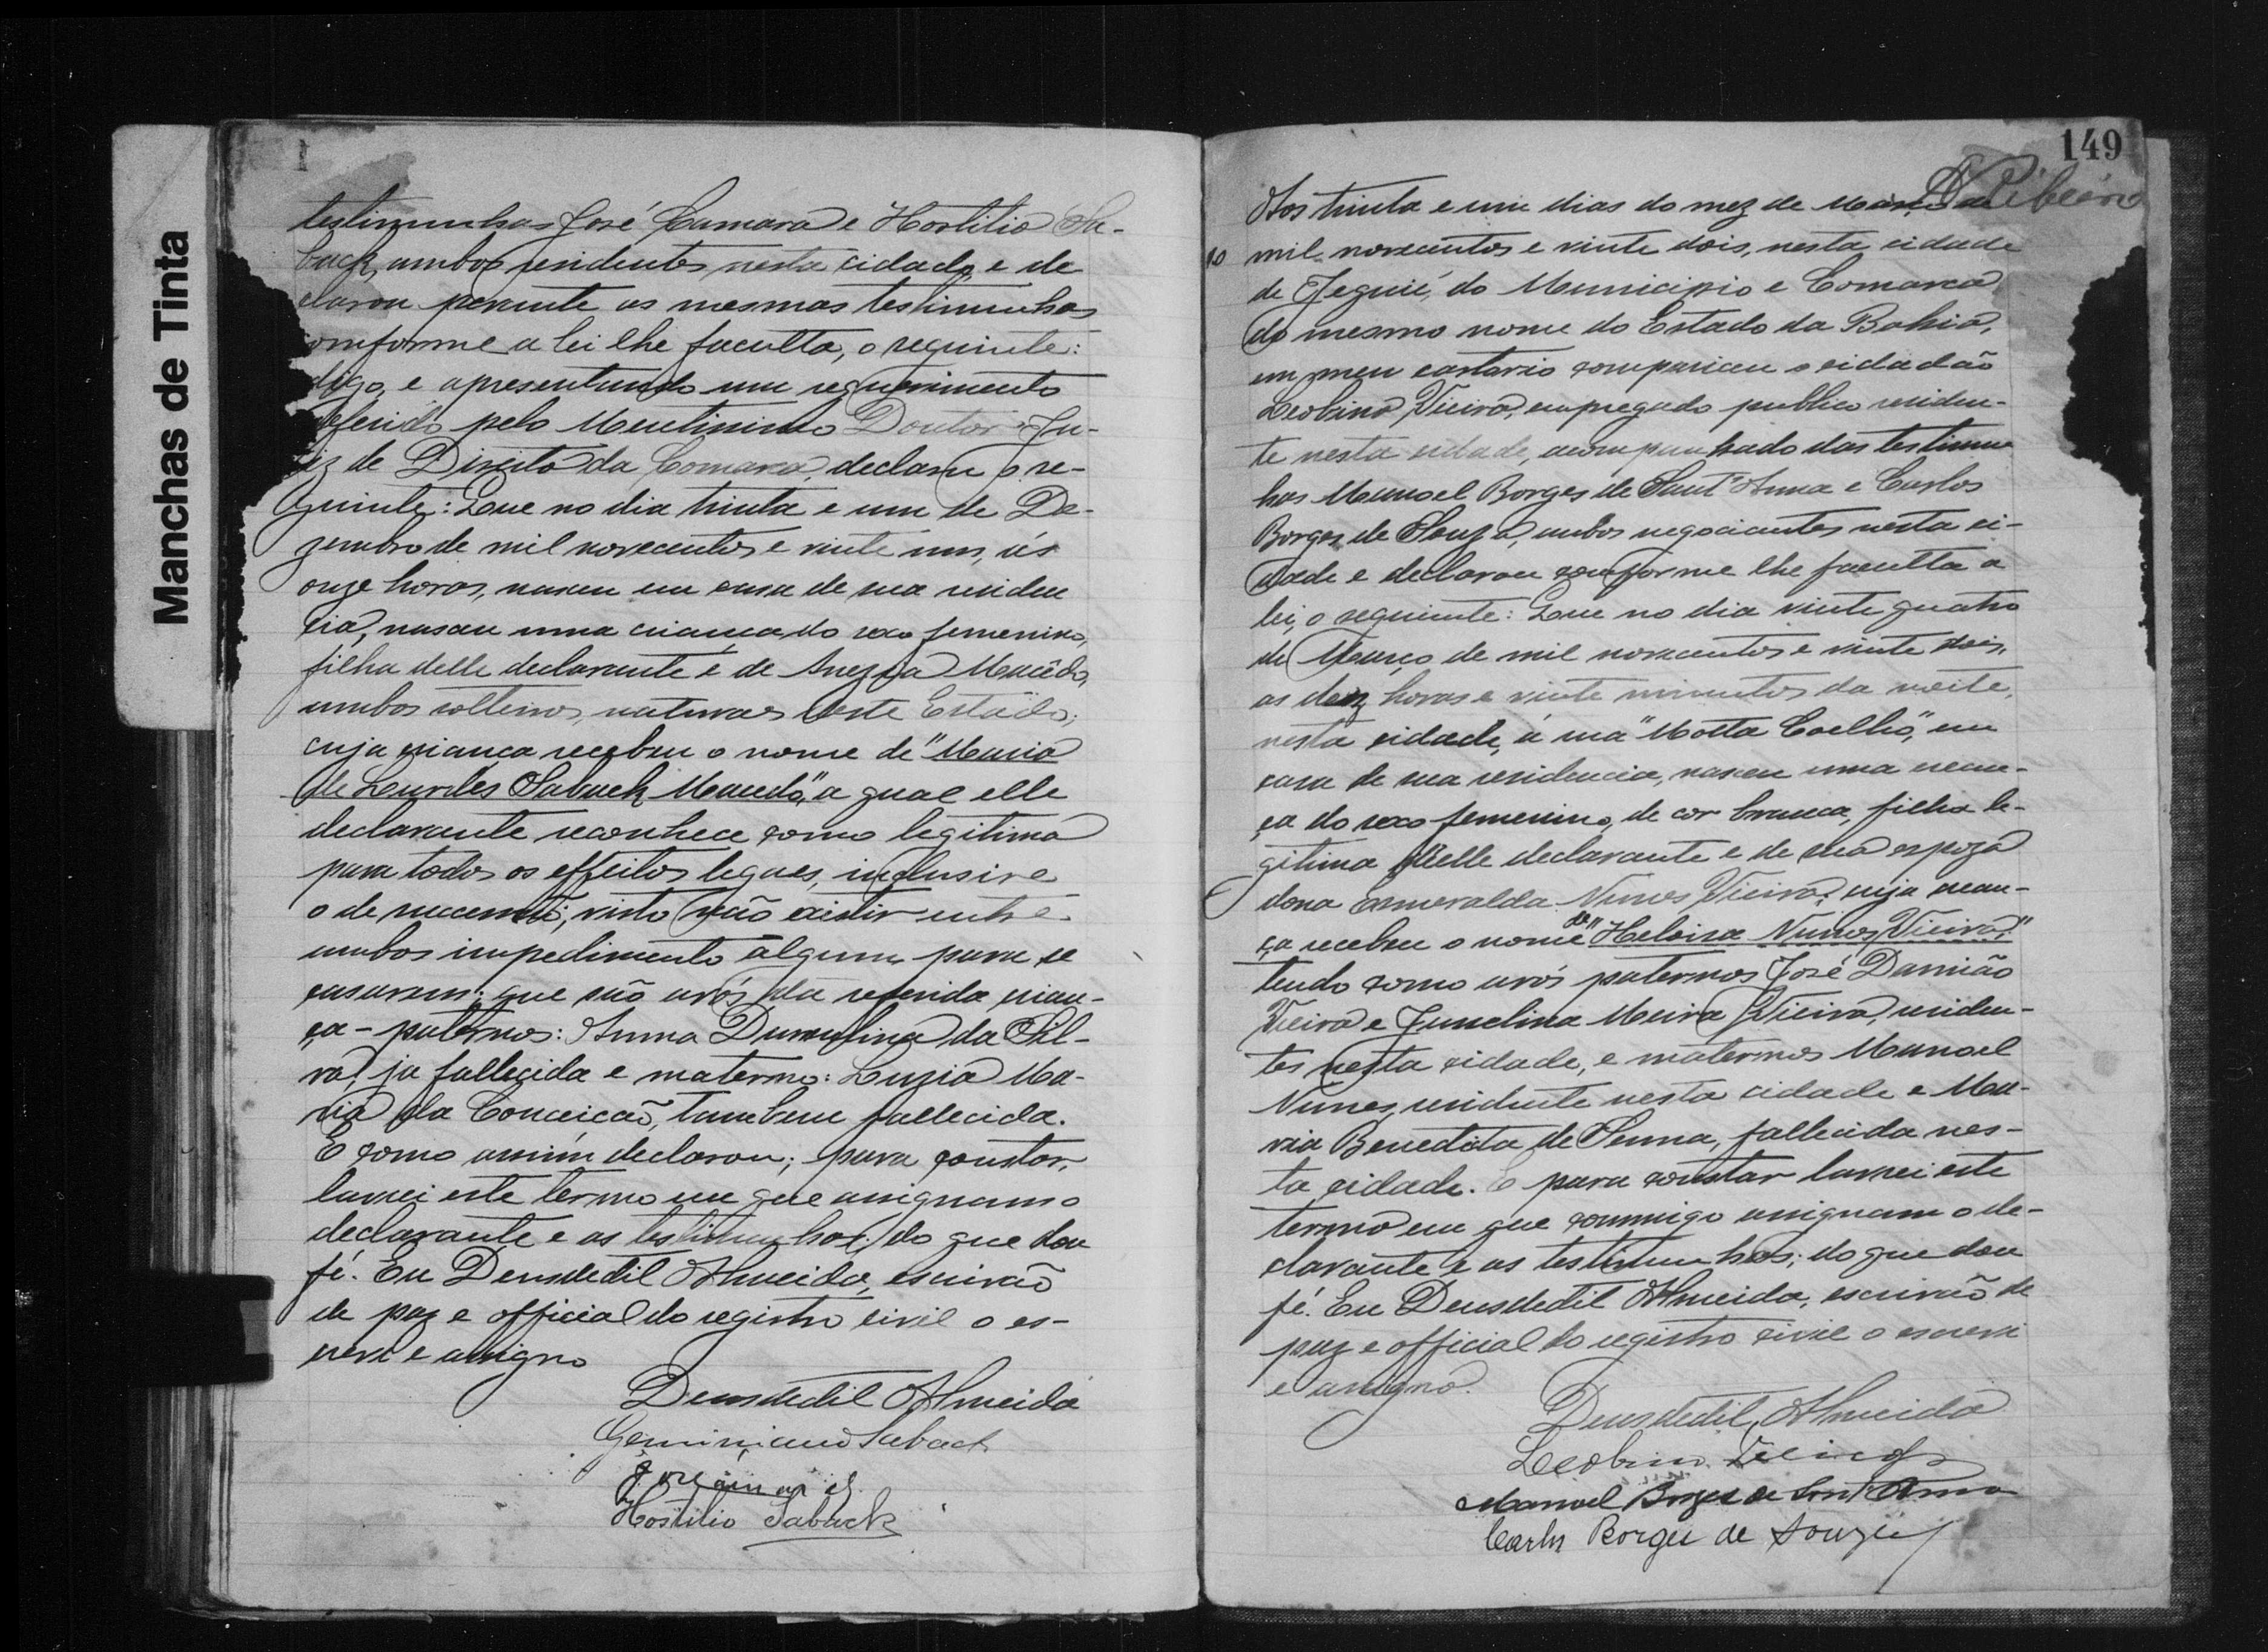 Manchas de Tinta
1
testimunhas José Camara e Hostilio Sa-
back, ambos residentes nesta cidade, e de
clarou perante as mesmas testimunhas
conforme a lei lhe faculta, o seguinte:
digo, e apresentando um requerimento
deferido pelo Meritissimo Doutor Ju-
iz de Direito da Comarca, declarou o se-
guinte: Que no dia trinta e um de De-
zembro de mil novecentos e vinte um, ás
onze horas, nasceu em casa de sua residen
cia, nasceu uma criança do sexo femenino,
filha delle declarante e de Anezia Macêdo,
ambos solteiros, naturaes deste Estado;
cuja criança recebeu o nome de "Maria
de Lourdes Saback Macedo", a qual elle
declarante reconhece como legitima
para todos os effeitos legaes, inclusive
o de successão, visto não existir entre
ambos impedimento algum para se
casarem; que são avós da referida crian-
ça - paternos: Anna Durvulina da Sil-
va, ja fallecida e materno: Luzia Ma-
ria da Conceicão, tambem fallecida.
E como assim declarou; para constar,
lavrei este termo em que assignam o
declarante e as testimunhas; do que dou
fé. Eu Deusdedit Almeida, escrivão
de paz e official do registro civil o es-
crevi e assigno
Deusdedit Almeida
Geminiano Saback
José
Hostilio Saback
149
Ribeiro
Aos trinta e um dias do mez de Março de
10 mil, novecentos e vinte dois, nesta cidade
de Jequié, do Municipio e Comarca
do mesmo nome do Estado da Bahia,
em meu cartorio compareceu o cidadão
Leobino Vieira, empregado publico residen-
te nesta cidade, acompanhado das testimu
has Manoel Borges de Sant'Anna e Carlos
Borges de Souza, ambos negociantes nesta ci-
dade e declarou conforme lhe faculta a
lei, o seguinte: Que no dia vinte quatro
de Março de mil novecentos e vinte dois,
as dez horas e vinte minutos da noite,
nesta cidade, á rua "Motta Coelho", em
casa de sua residencia, nasceu uma crean-
ça do sexo femenino, de cor branca, filha le-
gitima delle declarante e de sua espoza
dona Esmeralda Nunes Vieira; cuja crean-
ça recebeu o nome de "Heloisa Nunes Vieira"
tendo como avós paternos José Damião
Vieira e Juvelina Meira Vieira, residen-
tes nesta cidade, e maternos Manoel
Nunes, residente nesta cidade e Ma-
ria Benedita de Senna, fallecida nes-
ta cidade. E para constar lavrei este
termo em que commigo assignam o de-
clarante e as testimunhas; do que dou
fé. Eu Deusdedit Almeida, escrivão de
paz e official do registro civil o escrevi
e assigno.
Deusdedit Almeida
Leobino Vieira
Manoel Borges de Sant'Anna
Carlos Borges de Souza